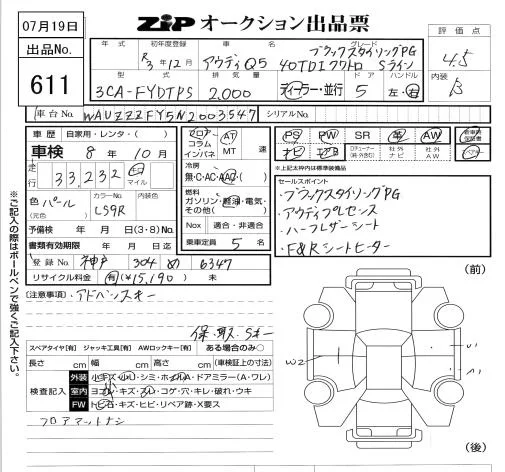 07月19日
出品No.
611
ZIP オークション出品票
評価点
4.5
内装
B
年式 初年度登録 車名 グレード
R3年12月 アウディQ5 40TDI クワトロ Sライン
ブラックスタイリングPG
型式 排気量 ドア ハンドル
3CA-FYDTPS 2,000 ディーラー・並行 5 左・右
車台No. WAUZZZFY5N2003547 シリアルNo.
車歴 自家用・レンタ・( )
車検 8年 10月
走行 33,232 キロ マイル
色 パール (元色) カラーNo. LS9R 内装色
予備検 年 月 日(3・8) No.
書類有効期限 年 月 日迄
登録No. 神戸 304 め 6347
リサイクル料金 有(¥15,190) 未
フロア コラム インパネ
AT MT 速
冷房
無・C・AC・AAC・( )
燃料
ガソリン・軽油・電気・その他( )
Nox 適合・非適合
乗車定員 5 名
PS PW SR 革 AW 新車時保証書
ナビ エアB TVチューナー(純・外部) 社外ナビ 社外AW
※上記太枠内は標準装備品
セールスポイント
・ブラックスタイリングPG
・アウディプレセンス
・ハーフレザーシート
・F&Rシートヒーター
(注意事項)・アドバンスキー
保・取・Sキー
スペアタイヤ[有] ジャッキ工具[有] AWロックキー[有] ある場合のみ○
長さ cm 幅 cm 高さ cm (車検証上の寸法)
検査記入
外装 小キズ・小凹・シミ・ホイルA・ドアミラー(A・ワレ)
室内 ヨゴレ・キズ・スレ・コゲ・穴・キレ・破れ・ウキ
FW トビ石・キズ・ヒビ・リペア跡・X要ス
フロアマットナシ
(前)
W2
(後)
※ご記入の際はボールペンで強くご記入下さい。